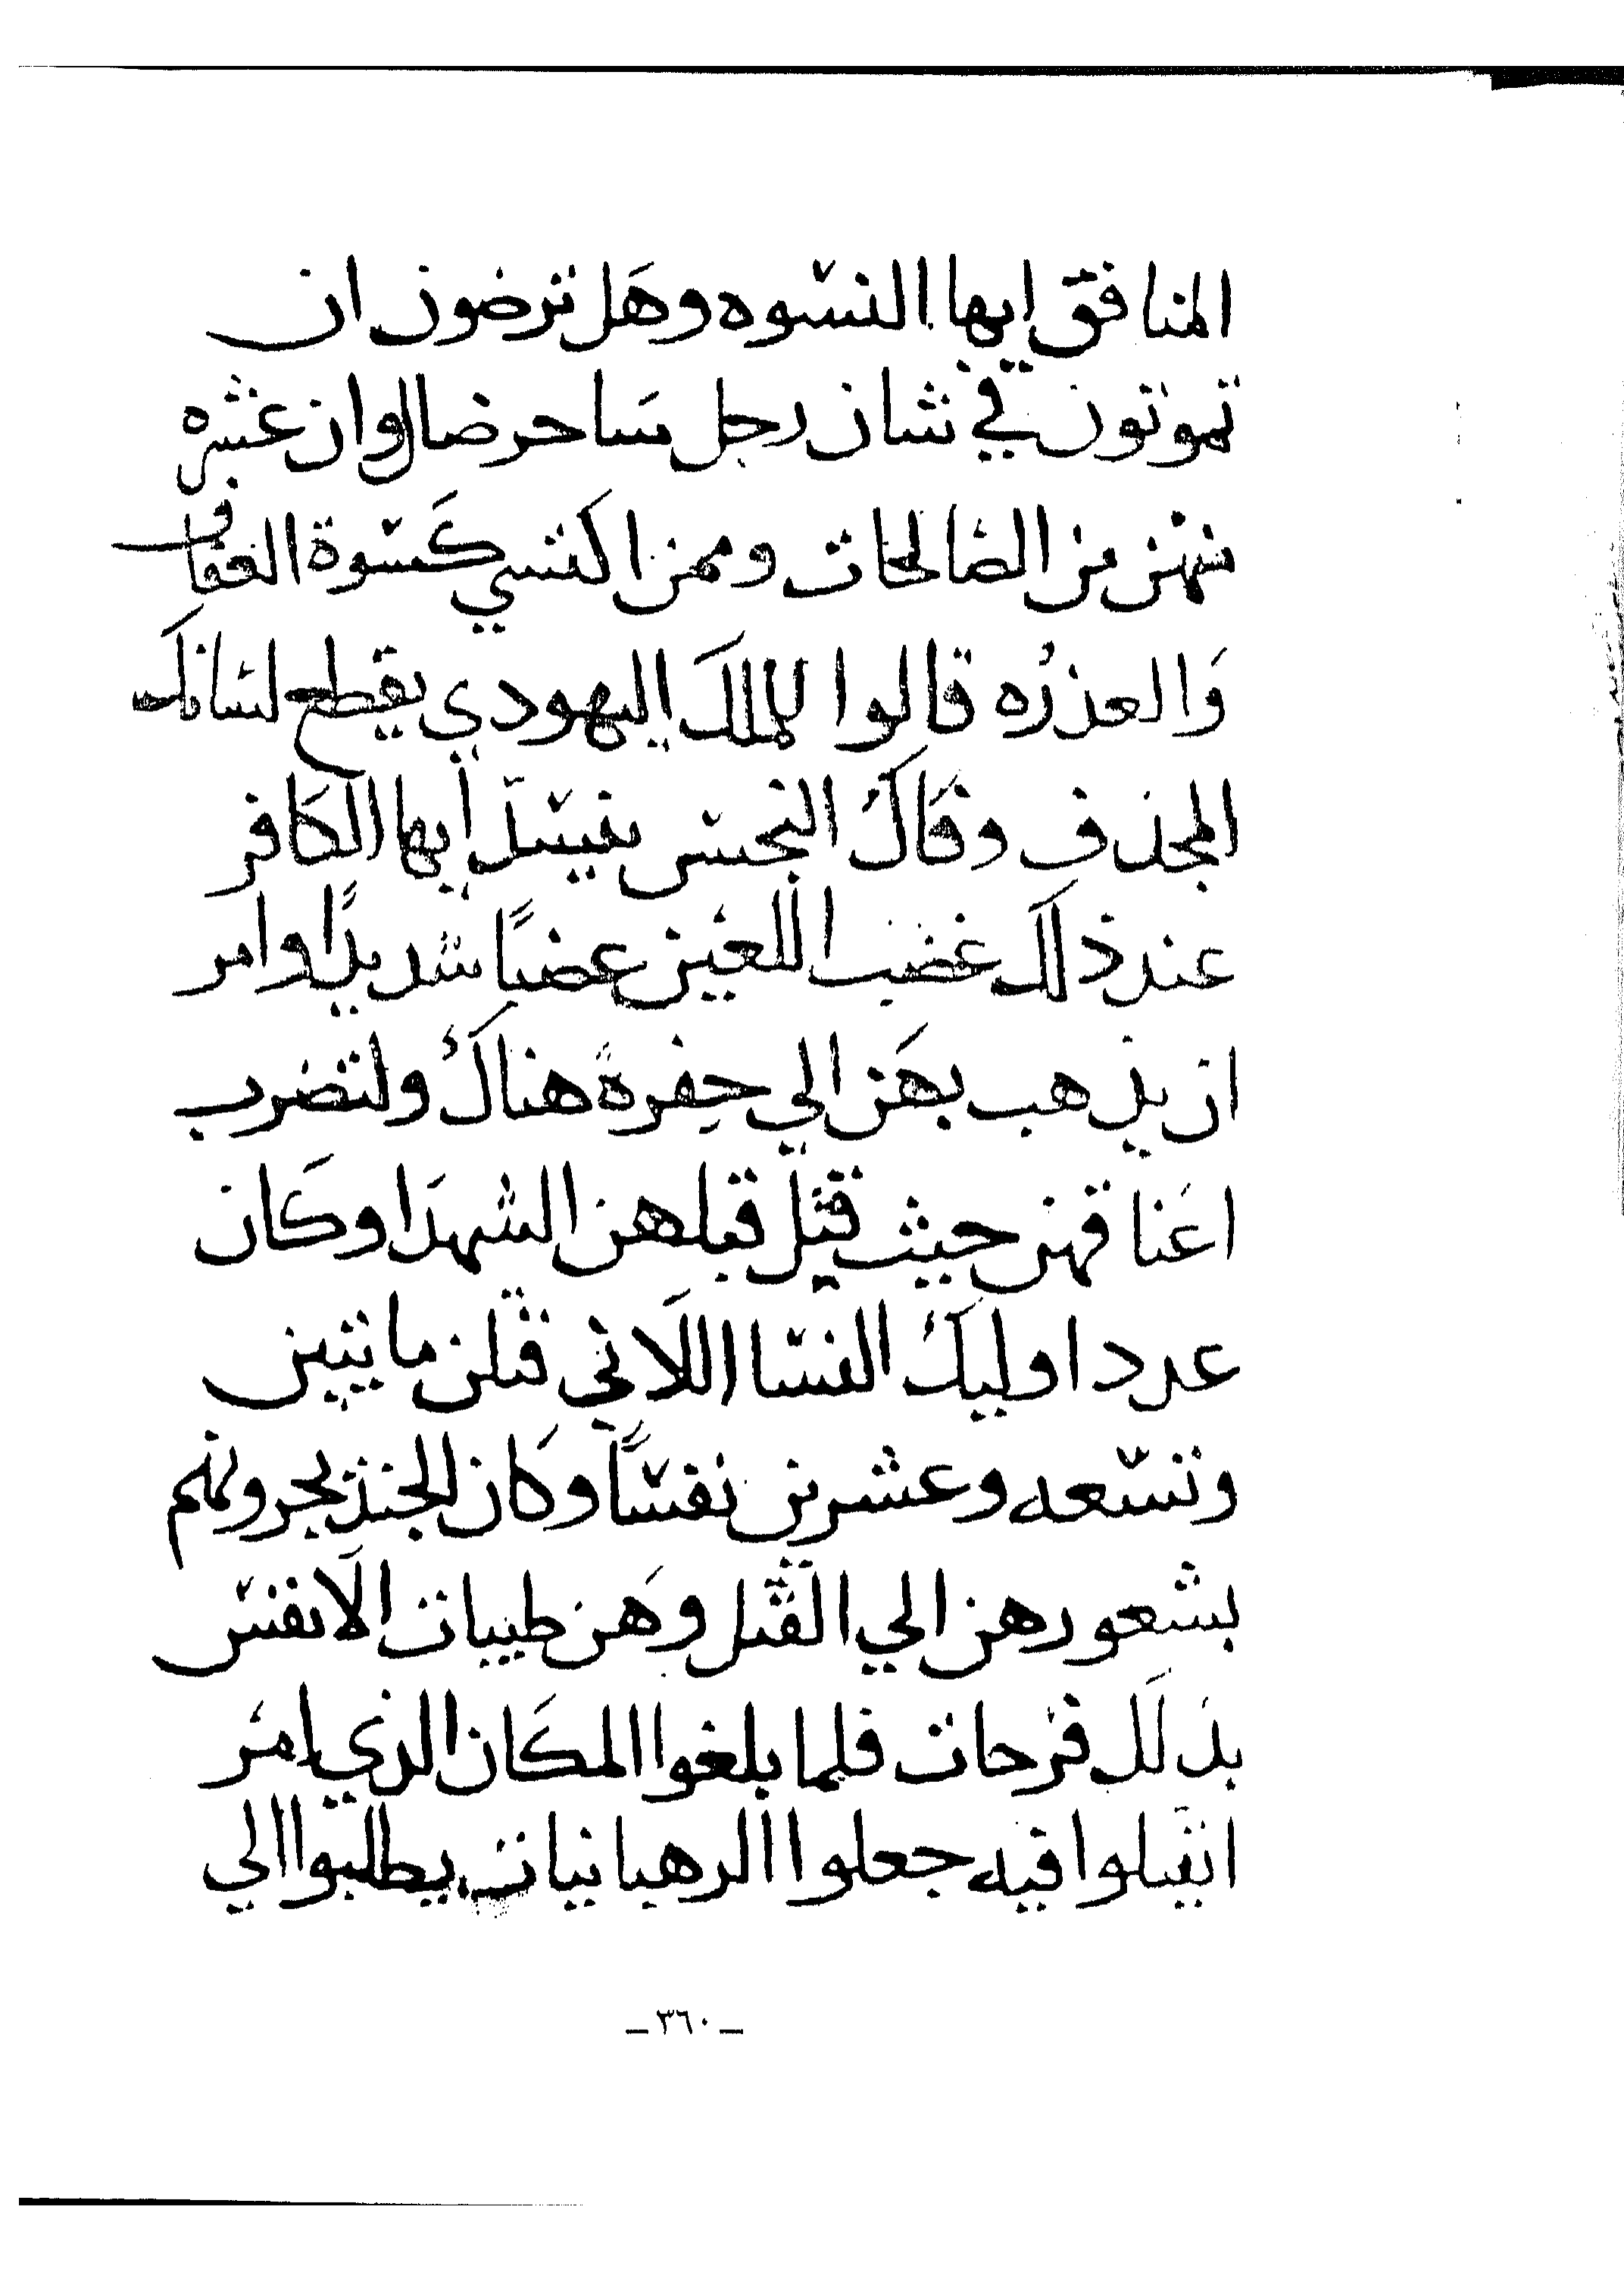 المنافق ايها النسوه وهل ترضون ان
تموتون في شان رجل ساحر ضال وان عشره
منهن من الصالحات وممن اكتسي كسوة العفاف
والعذره قالوا للملك اليهودي يقطع لسانك
المجذف وفاك النجس يفسد ايها الكافر
عند ذلك غضب اللعين عضبًا شديدًا وامر
ان يذهب بهن الي حفرة هناك ولتضرب
اعناقهن حيث قتل قبلهن الشهدا وكان
عدد اوليك النسا اللاتي قتلن مايتين
وتسعه وعشرين نفسًا وكان الجند يجرونهم
بشعورهن الي القتل وهن طيبات الانفس
بدلك فرحات فلما بلغوا المكان الذي امر
انيقتلوا فيه جعلوا الرهبانيات يطلبوا الي
– ٣٦٠ –